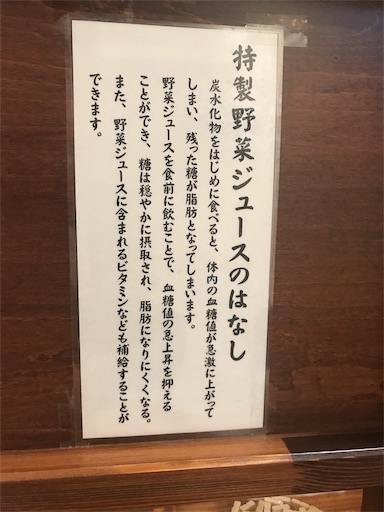 特製野菜ジュースのはなし
炭水化物をはじめに食べると、体内の血糖値が急激に上がって
しまい、残った糖が脂肪となってしまいます。
野菜ジュースを食前に飲むことで、血糖値の急上昇を抑える
ことができ、糖は穏やかに摂取され、脂肪になりにくくなる。
また、野菜ジュースに含まれるビタミンなども補給することが
できます。